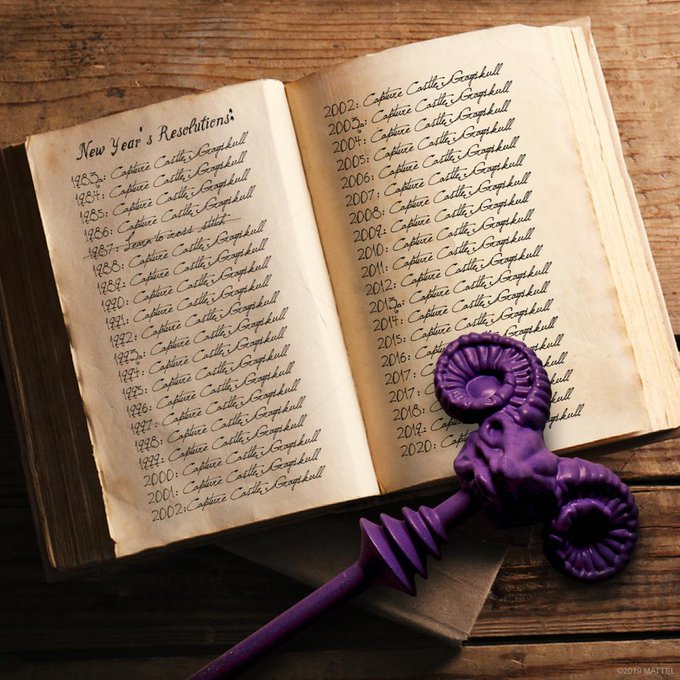 New Year's Resolutions:
1983: Capture Castle Grayskull
1984: Capture Castle Grayskull
1985: Capture Castle Grayskull
1986: Capture Castle Grayskull
1987: Learn to cross stitch
1988: Capture Castle Grayskull
1989: Capture Castle Grayskull
1990: Capture Castle Grayskull
1991: Capture Castle Grayskull
1992: Capture Castle Grayskull
1993: Capture Castle Grayskull
1994: Capture Castle Grayskull
1995: Capture Castle Grayskull
1996: Capture Castle Grayskull
1997: Capture Castle Grayskull
1998: Capture Castle Grayskull
1999: Capture Castle Grayskull
2000: Capture Castle Grayskull
2001: Capture Castle Grayskull
2002: Capture Castle Grayskull
2002: Capture Castle Grayskull
2003: Capture Castle Grayskull
2004: Capture Castle Grayskull
2005: Capture Castle Grayskull
2006: Capture Castle Grayskull
2007: Capture Castle Grayskull
2008: Capture Castle Grayskull
2009: Capture Castle Grayskull
2010: Capture Castle Grayskull
2011: Capture Castle Grayskull
2012: Capture Castle Grayskull
2013: Capture Castle Grayskull
2014: Capture Castle Grayskull
2015: Capture Castle Grayskull
2016:
2017:
2017:
2018:
2019:
2020:
©2019 MATTEL